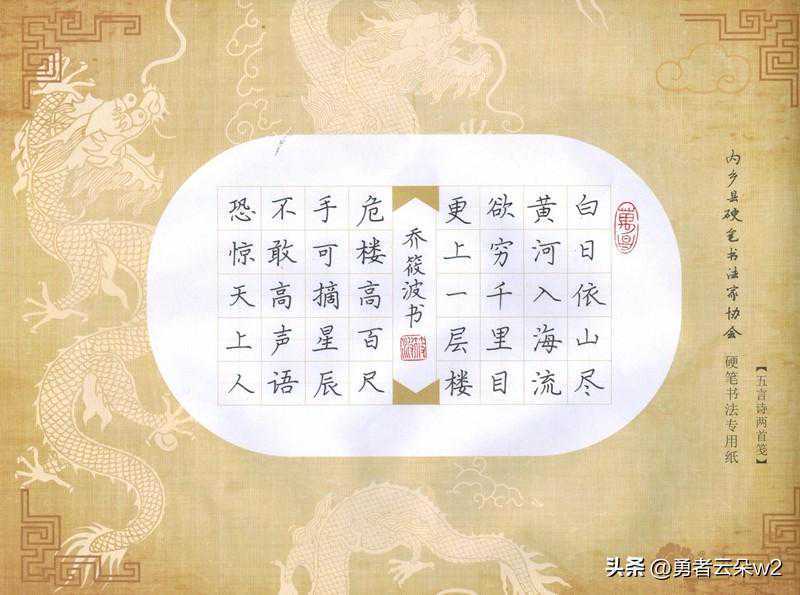 内乡县硬笔书法家协会 硬笔书法专用纸
【五言诗两首笺】
白日依山尽
黄河入海流
欲穷千里目
更上一层楼
乔筱波书
危楼高百尺
手可摘星辰
不敢高声语
恐惊天上人
头条 @勇者云朵w2